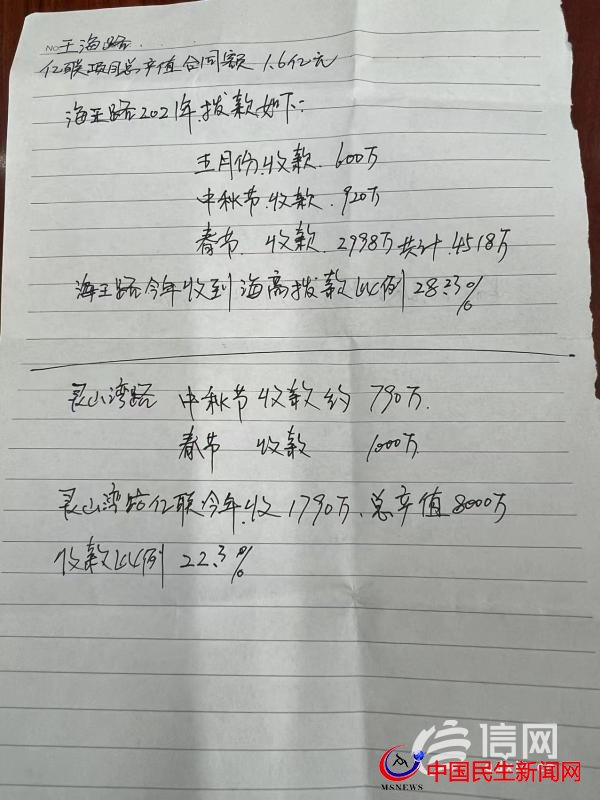 No 王海路
亿联项目总产值合同额 1.6亿元
海王路2021年拨款如下:
五月份.收款. 600万
中秋节.收款. 920万
春节. 收款. 2998万共计.4518万
海王路今年收到海高拨款比例 28.23%
灵山湾路 中秋节收款约 790万.
春节 收款 1000万
灵山湾路亿联今年.收1790万.总产值8000万
收款比例 22.3%
信网
中国民生新闻网
MSNEWS